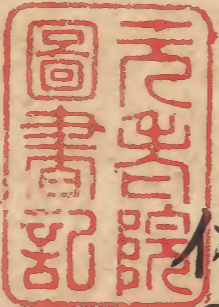 元老院
圖書記